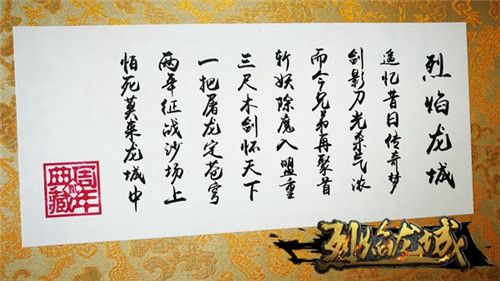 烈焰龙城
遥忆昔日传奇梦
剑影刀光杀气浓
而今兄弟再聚首
斩妖除魔入盟重
三尺木剑怀天下
一把屠龙定苍穹
两年征战沙场上
怕死莫来龙城中
周年典藏
烈焰龙城